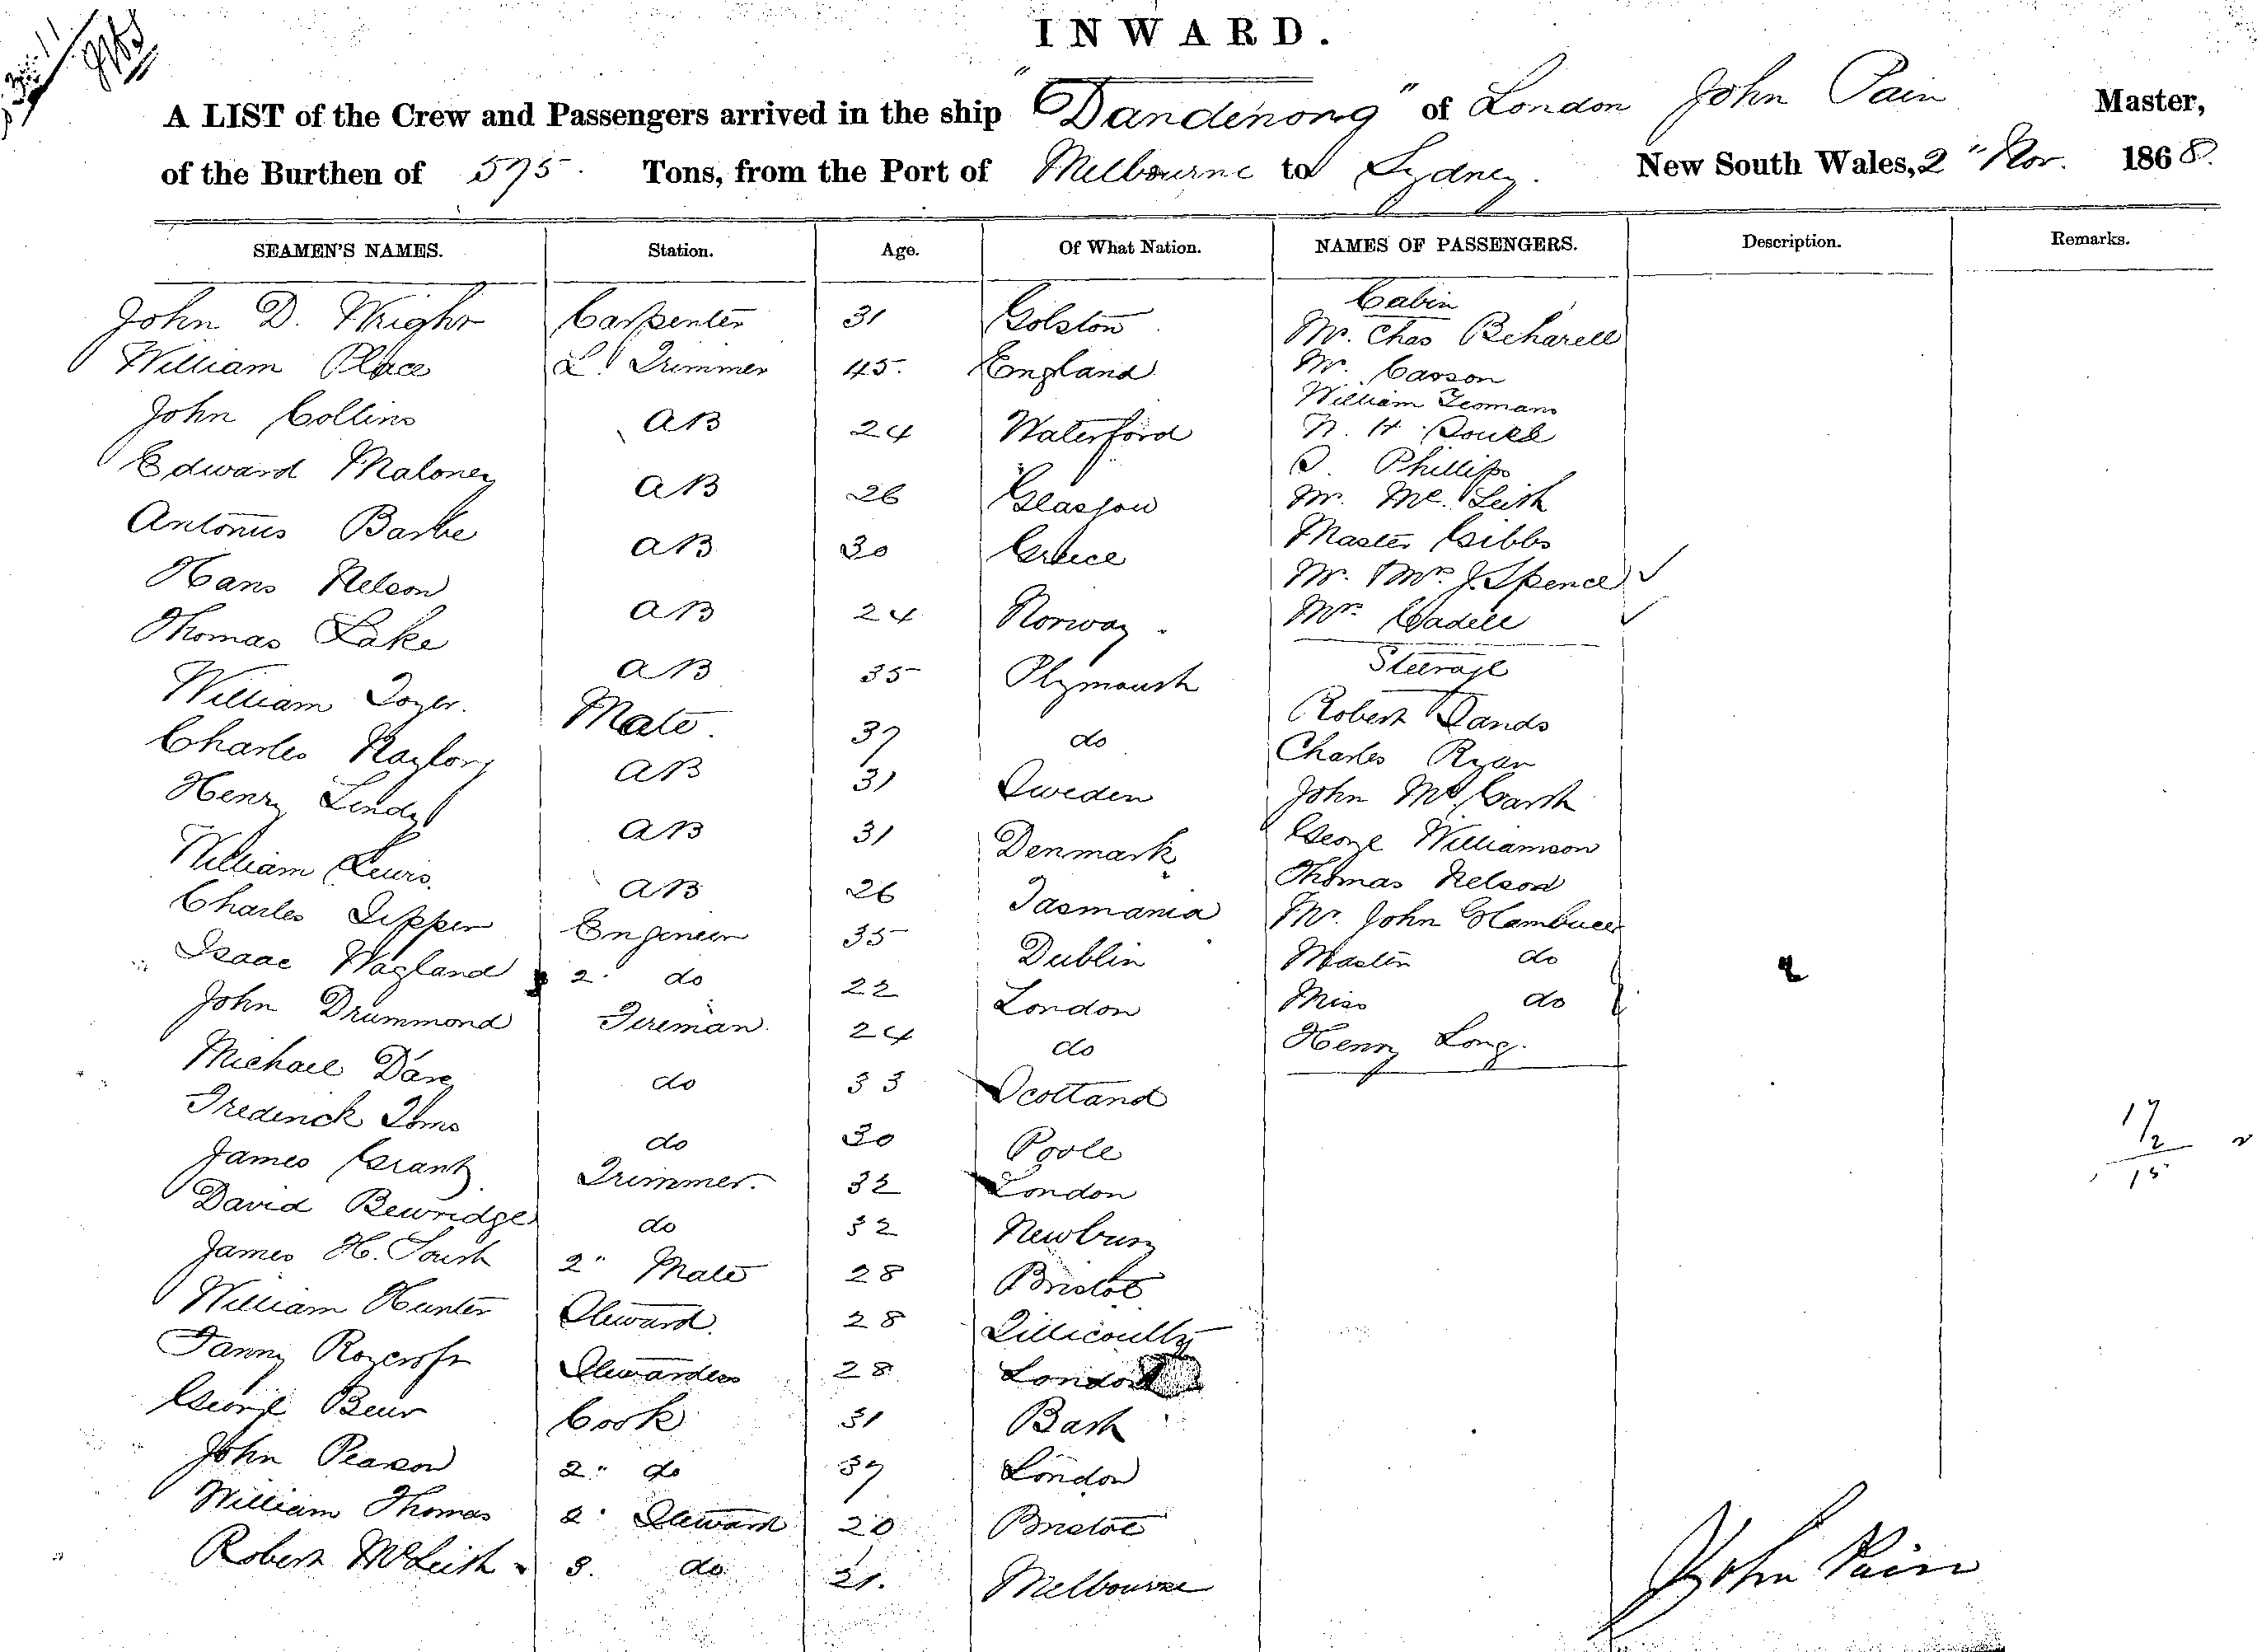 INWARD.
A LIST of the Crew and Passengers arrived in the ship "Dandenong" of London John Pain Master,
of the Burthen of 575 Tons, from the Port of Melbourne to Sydney. New South Wales, 2" Nov. 1868.
SEAMEN'S NAMES. Station. Age. Of What Nation. NAMES OF PASSENGERS. Description. Remarks.
John D. Wright Carpenter 31 Golston
William Place L. Trimmer 45. England
John Collins AB 24 Waterford
Edward Maloney AB 26 Glasgow
Antonius Barbe AB 30 Greece
Hans Nelson AB 24 Norway
Thomas Lake AB 35 Plymouth
William Toyer. Mate. 37 do
Charles Naylor AB 31 Sweden
Henry Lendy AB 31 Denmark
William Lewis. AB 26 Tasmania
Charles Tipper Engineer 35 Dublin
Isaac Wagland 2. do 22 London
John Drummond Fireman. 24 do
Michael Darcy do 33 Scotland
Frederick Toms do 30 Poole
James Grant Trimmer. 32 London
David Bewridge do 32 Newbury
James H. South 2" Mate 28 Bristol
William Hunter Steward. 28 Tillicoultry
Fanny Roycroft Stewardess 28 London
George Beur Cook 31 Bath
John Pearson 2" do 37 London
William Thomas 2. Steward 20 Bristol
Robert McLeish 3. do 21. Melbourne
Cabin
Mr. Chas Beharell
Mr. Carson
William Yeomans
N. H.
S. Phillips
Mr. Mc.Leish
Master Gibbs
Mr. & Mrs J. Spence
Mrs Cadell
Steerage
Robert Sands
Charles Ryan
John McGarth
George Williamson
Thomas Nelson
Mr. John
Master do
Miss do
Henry Long.
2
17
2
15
John Pain